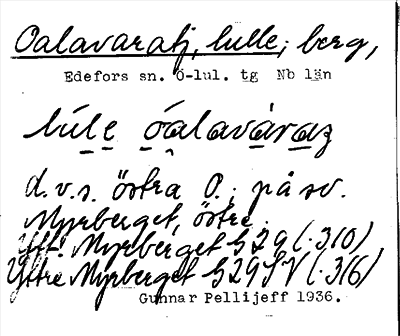 Oalavaratj, lulle; berg,
Edefors sn. Ö-lul. tg Nb län
lúlĕ óalavàraz
d.v.s. östra O.; på sv.
Myrberget, östre.
Ytt. Myrberget G29 (·310),
Yttre Myrberget G29SV (·316)
Gunnar Pellijeff 1936.